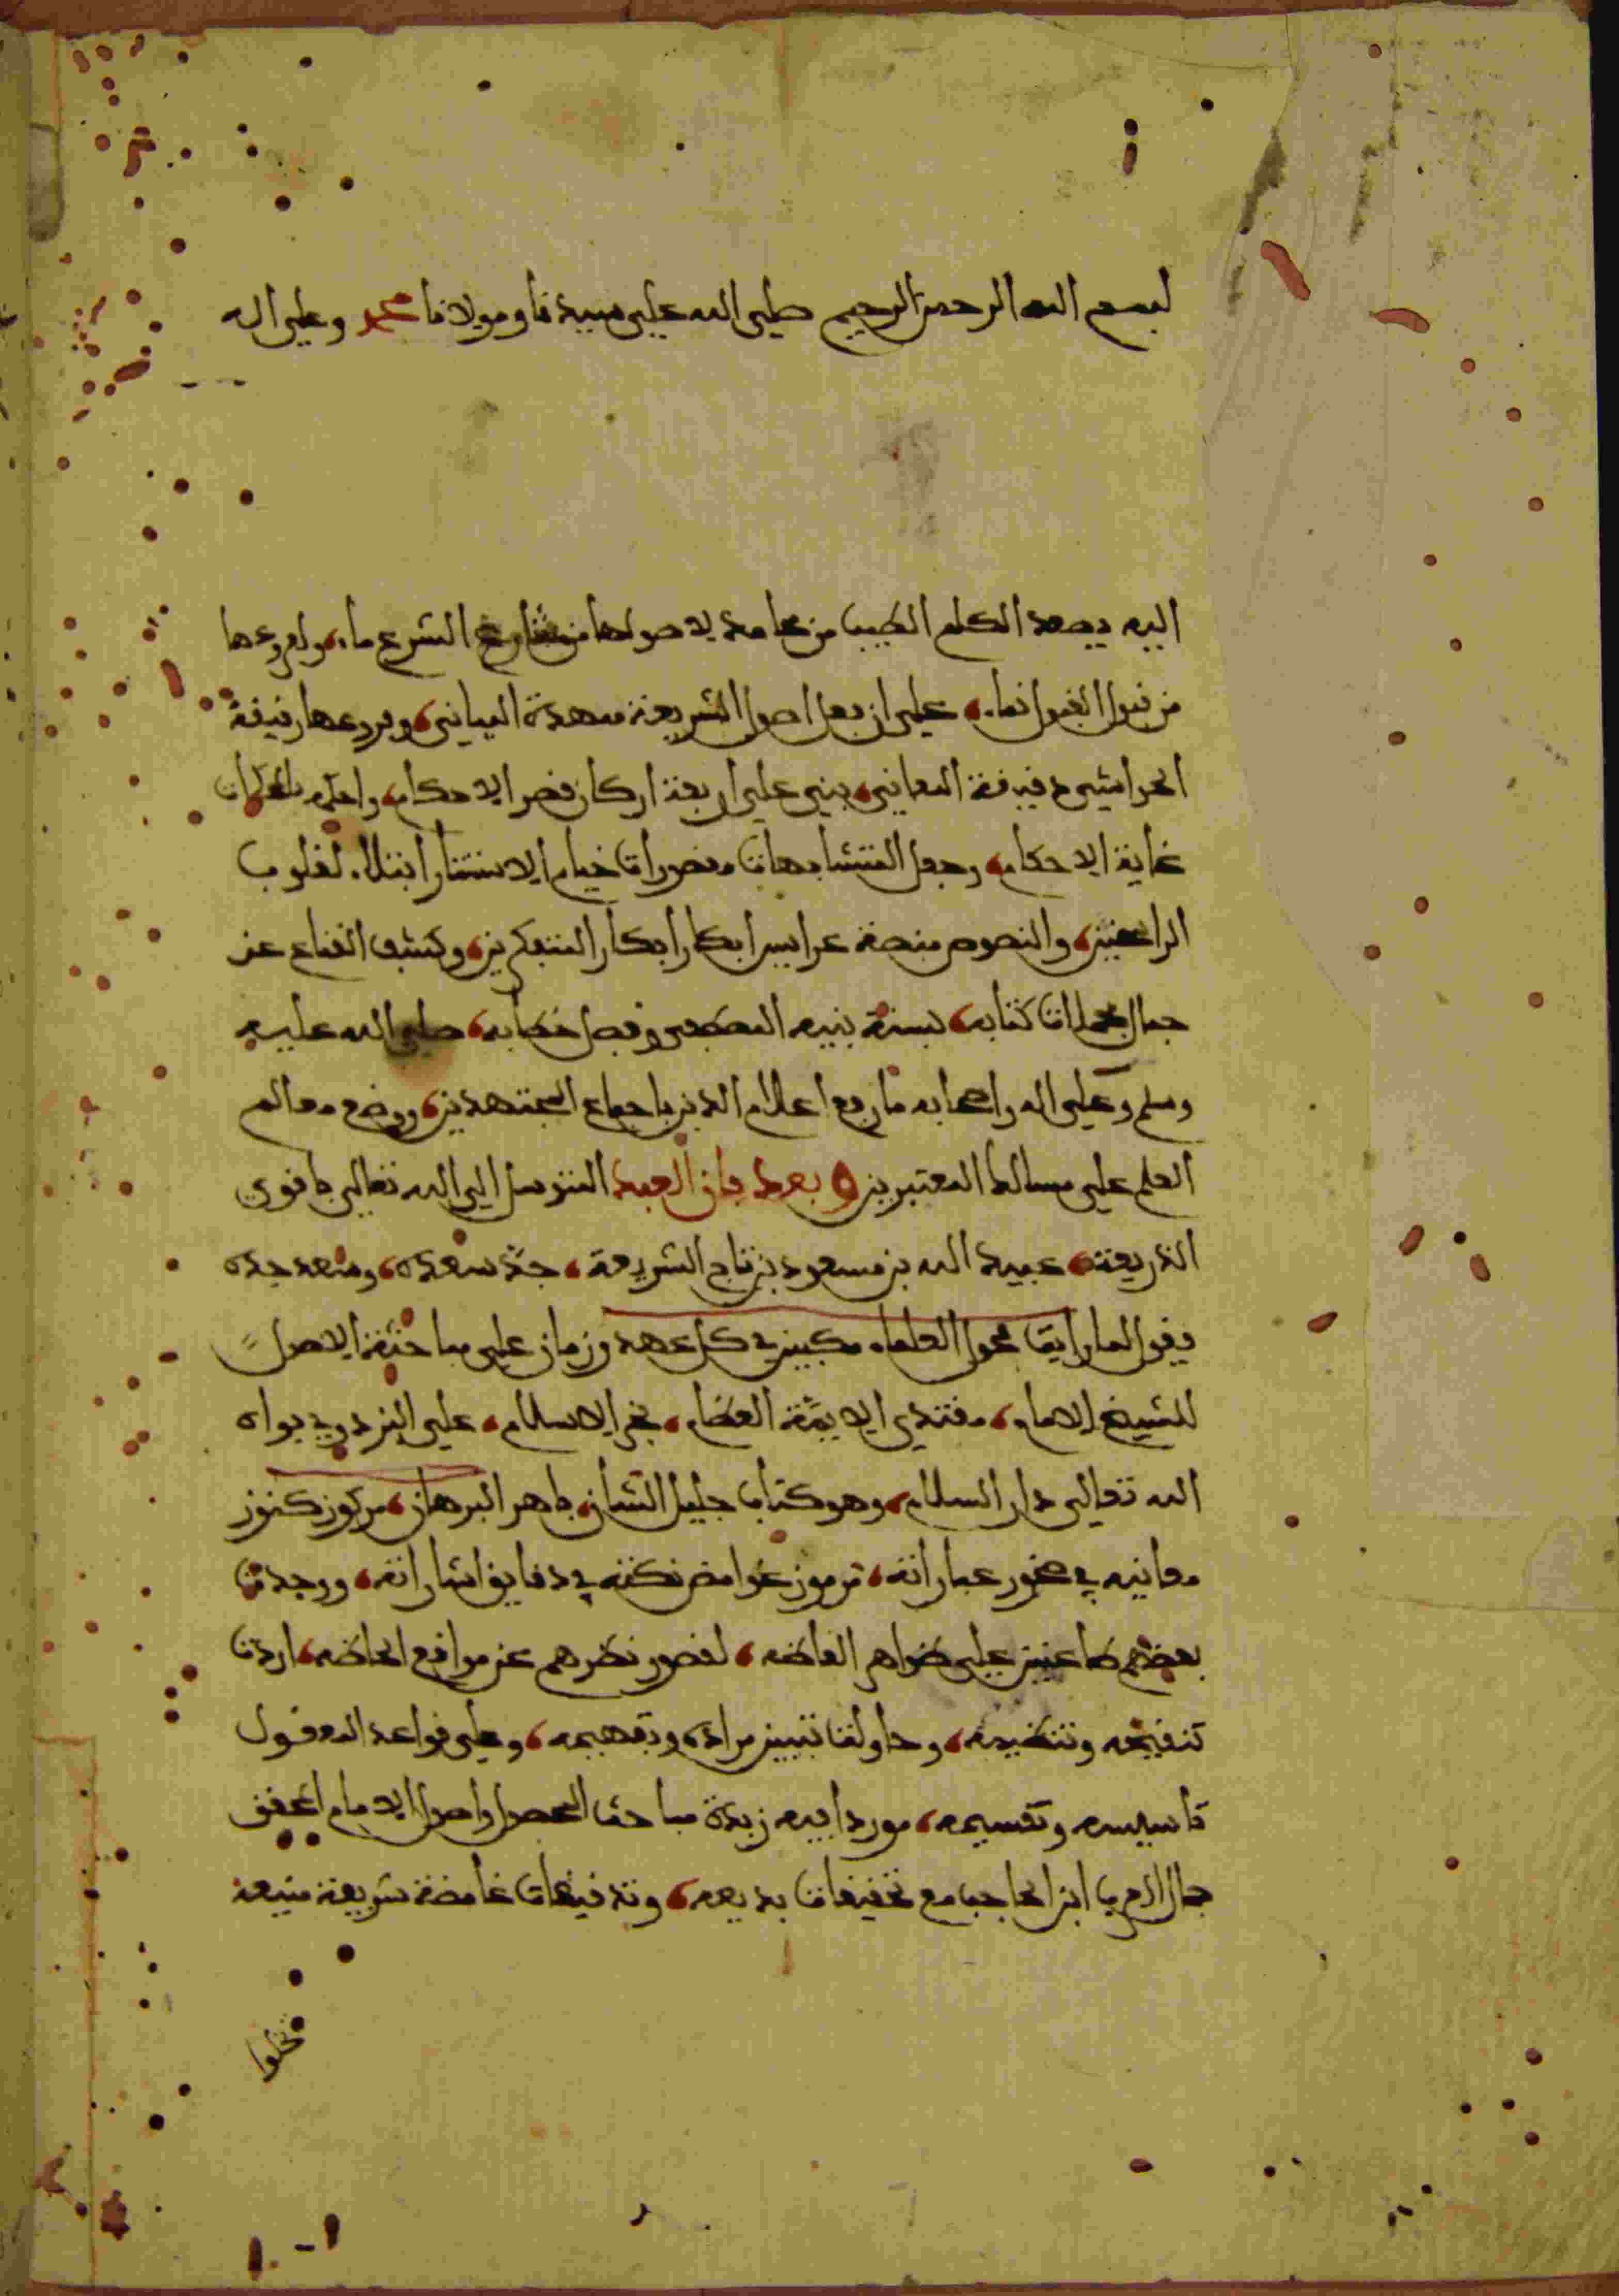 بسم الله الرحمن الرحيم صلى الله على سيدنا ومولانا محمد وعلى اله
اليه يصعد الكلم الطيب من محامد لاصولها من مشارع الشرع ماء ولفروعها
من قبول القبول نماء على ان جعل اصول الشريعة ممهدة المباني وفروعها رقيقة
الحواشي دقيقة المعاني بنى على اربعة اركان قصر الاحكام واحكمه بالمحكمات
غاية الاحكام وجعل المتشابهات مقصورات خيام الاستتار ابتلاء لقلوب
الراسخين والنصوص منصة عرايس ابكار افكار المتفكرين وكشف القناع عن
جمال مجملات كتابه بسنة نبيه المصطفى وفصل خطابه صلى الله عليه
وسلم وعلى اله واصحابه ما رفع اعلام الدين باجماع المجتهدين ووضع معالم
العلم على مسالك المعتبرين وبعد فان العبد المتوسل الى الله تعالى باقوى
الذريعة عبيد الله بن مسعود بن تاج الشريعة جد سعده وسعد جده
يقول لما رايت فحول العلماء مكبين في كل عهد وزمان على مباحثة الاصول
للشيخ الامام مقتدى الايمة العظام فخر الاسلام على البزدوي بواه
الله تعالى دار السلام وهو كتاب جليل الشان باهر البرهان مركوز كنوز
معانيه في صخور عباراته مرموز غوامض نكته في دقايق اشاراته ووجدت
بعضهم طاعنين على ظواهر الفاظه لقصور نظرهم عن مواقع الحاظه اردت
تنقيحه وتنظيمه وحاولت تبيين مراده وتفهيمه وعلى قواعد المعقول
تاسيسه وتقسيمه موردا فيه زبدة مباحث المحصول واصول الامام المحقق
جمال العرب ابن الحاجب مع تحقيقات بديعه وتدقيقات غامضة شريعة منيعه
تخلوا